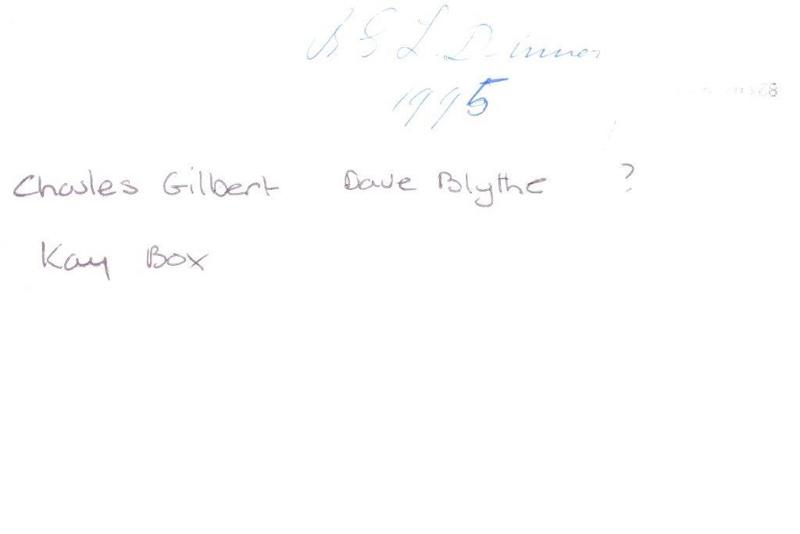 Dinner
1995
Charles Gilbert Dave Blythe ?
Kay Box